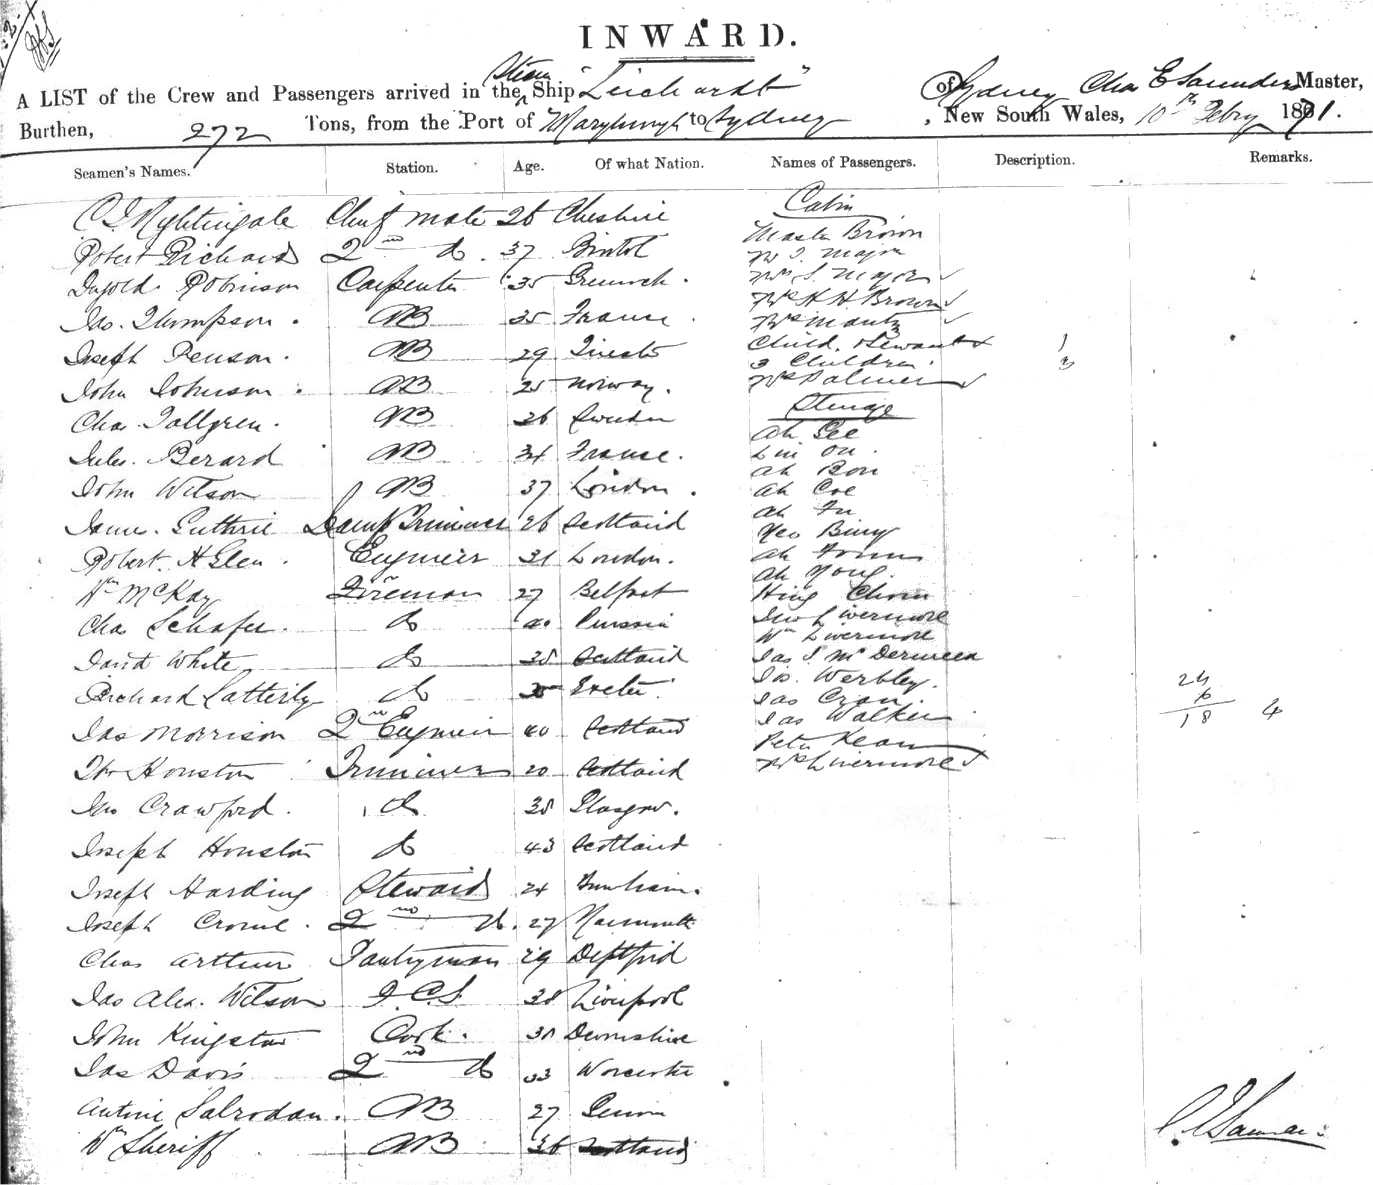 INWARD.
A LIST of the Crew and Passengers arrived in the Steam Ship "Leichardt" of Sydney Chas E Saunders Master,
Burthen, 272 Tons, from the Port of Maryburgh to Sydney, New South Wales, 10th Febry 1871.
Seamen's Names. Station. Age. Of what Nation. Names of Passengers. Description. Remarks.
C J Nightingale Chief mate 26 Cheshire
Robert Richards 2nd do 37 Bristol
Robinson Carpenter 35 Greenock
Jas. Thompson AB 35 France
Joseph Penson AB 29 Trieste
John Johnson AB 25 Norway
Chas Tallgren AB 26 Sweden
Jules Berard AB 34 France
John Wilson AB 37 London
James Guthrie Lamp Trimmer 26 Scotland
Robert H Glen Engineer 31 London
Wm McKay Fireman 27 Belfast
Chas Schafer do 40 Prussia
David White do 38 Scotland
Richard Latterly do 35 Exeter
Jas Morrison 2nd Engineer 40 Scotland
Thos Houston Trimmer 20 Scotland
Jno Crawford do 38 Glasgow
Joseph Houston do 43 Scotland
Joseph Harding Steward 24
Joseph Crowe 2nd do 27
Chas Arthur Pantryman 29 Deptford
Jas Alex. Wilson F.C.S. 38 Liverpool
John Kingston Cook 38 Devonshire
Jas Davis 2nd do 33 Worcester
Antoine Salrodan AB 27 Genoa
Wm Sheriff AB 36 Scotland
Cabin
Master Brown
J. Major
Mrs J. Major
Mrs H H Brown
Mrs Mantz
Child, Servant 1
3 Children 3
Mrs Palmer
Steerage
Ah Gee
Lin On
Ah Bon
Ah Coe
Ah Fu
Yeo Bing
Ah
Ah Yong
Hing Chow
Livermore
Wm Livermore
Jas J. McDermeed
Jos. Werbley
Jas Cran
Jas Walker
Peter Kean
Mrs Livermore
24
6
18 4